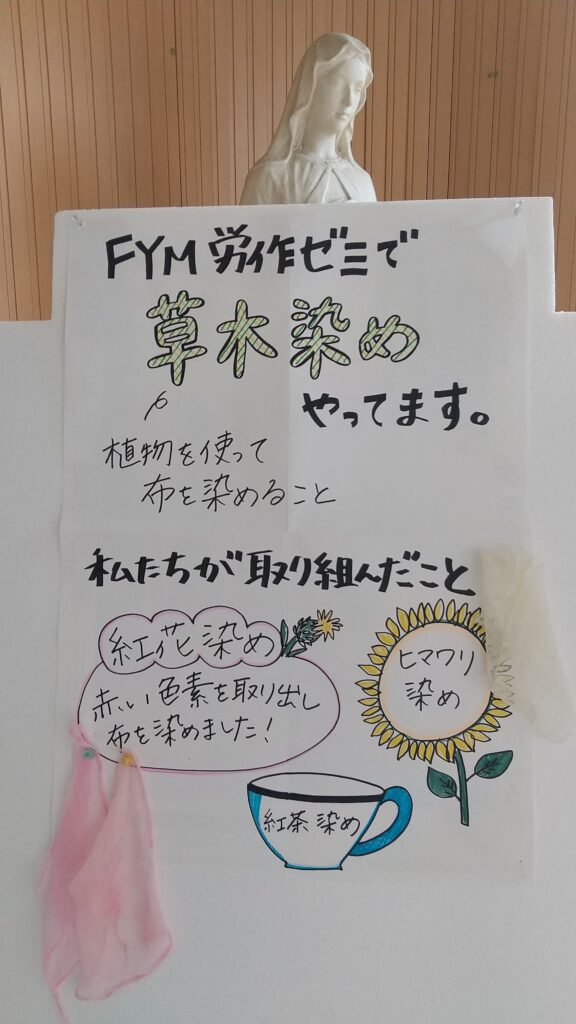 FYM 労作ゼミで
草木染め
やってます。
植物を使って
布を染めること
私たちが取り組んだこと
紅花染め
赤い色素を取り出し
布を染めました!
ヒマワリ
染め
紅茶染め